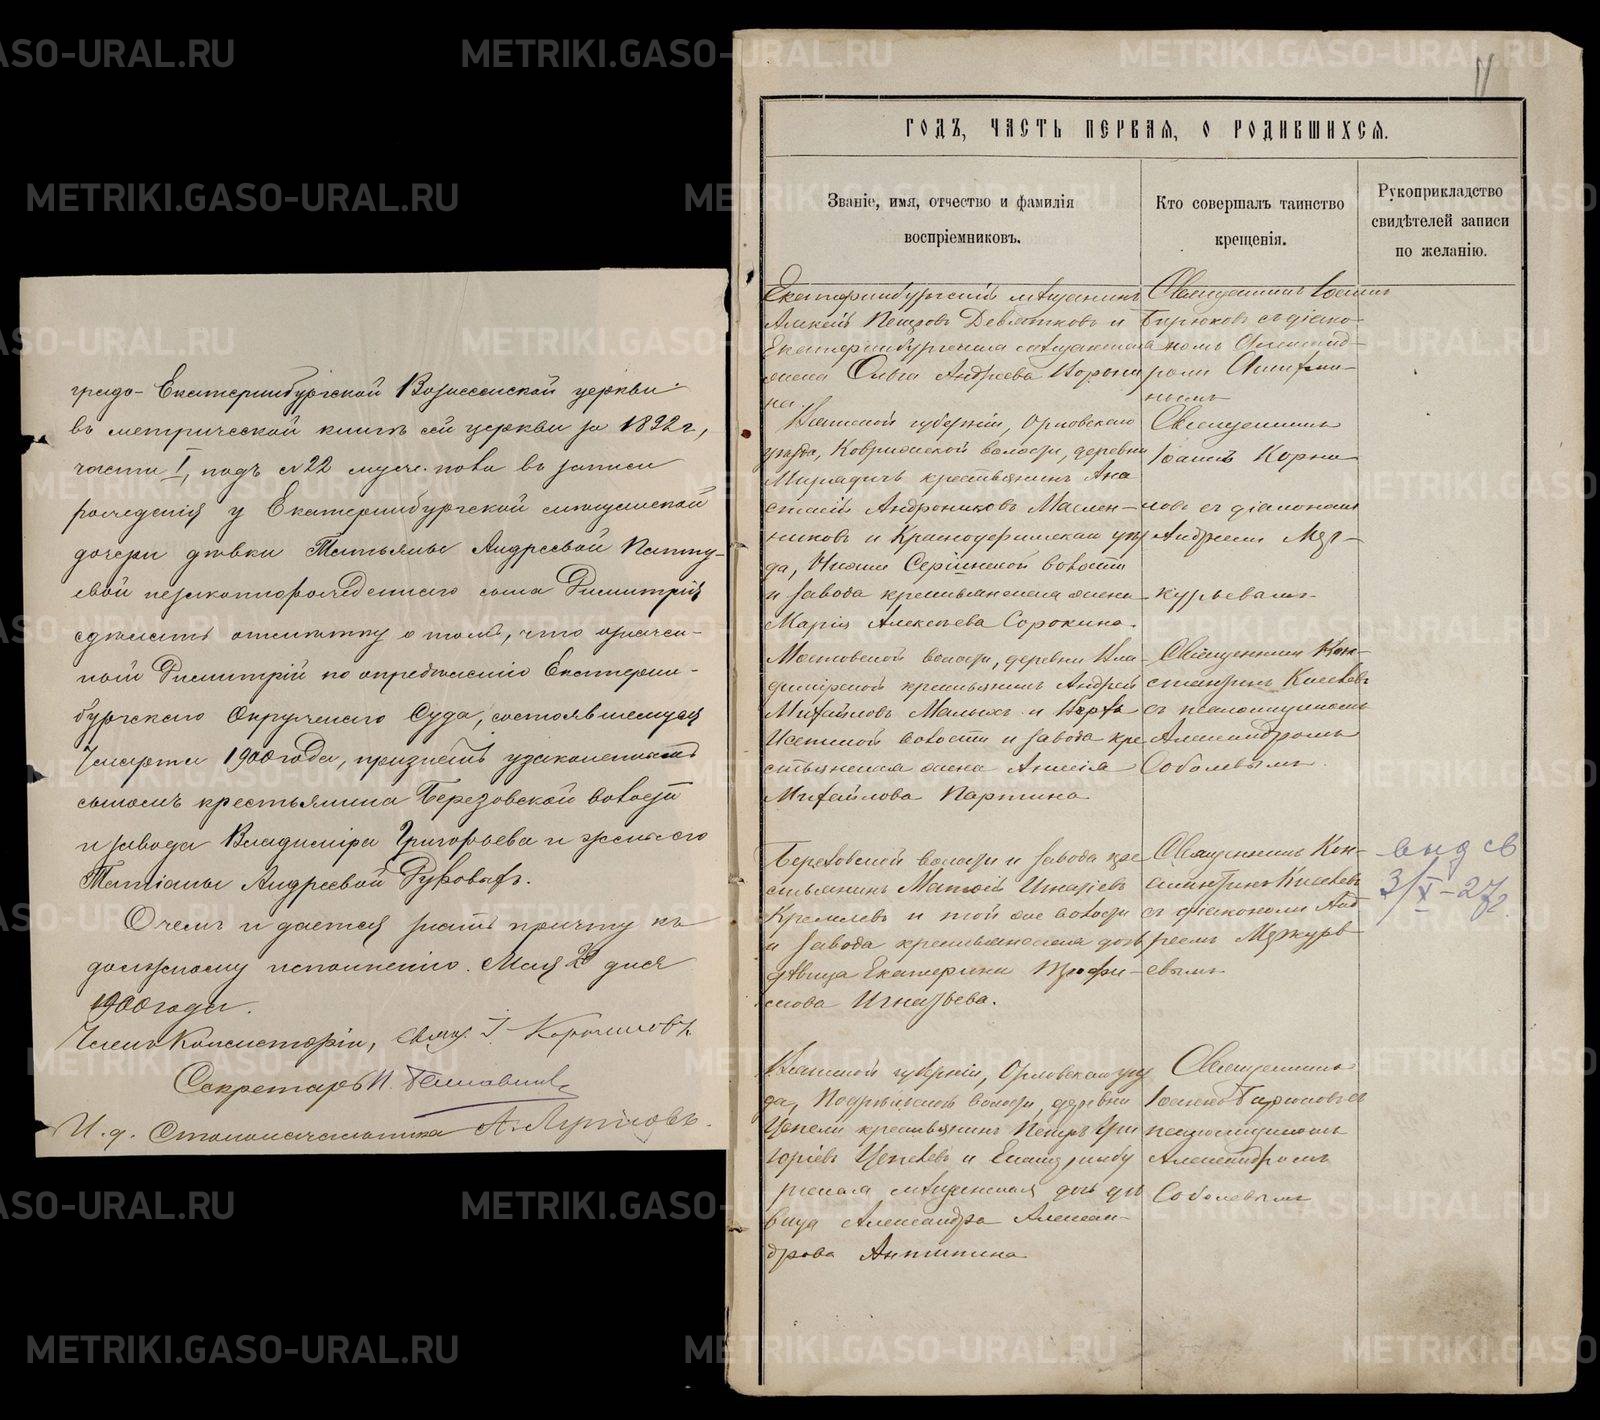 градо-Екатеринбургской Вознесенской церкви
въ метрической книгѣ сей церкви за 1892 г,
части I, подъ №22 муж. пола въ записи
рожденія у Екатеринбургской мѣщанской
дочери дѣвки Татьяны Андреевой
незаконнорожденнаго сына Димитрія
сдѣлать отмѣтку о томъ, что означен-
ный Димитрій по опредѣленію Екатерин-
бургскаго Окружнаго Суда, состоявшемуся
марта 1900 года, признанъ узаконеннымъ
сыномъ крестьянина Березовской волости
и завода Владиміра Григорьева и жены его
Татіаны Андреевой
О чемъ и дается знать причту къ
должному исполненію. Мая дня
1900 года.
Членъ Консисторіи, свящ. І.
Секретарь
И. д. Столоначальника
ГОДЪ, ЧАСТЬ ПЕРВАЯ, О РОДИВШИХСЯ.
Званіе, имя, отчество и фамилія
воспріемниковъ.
Кто совершалъ таинство
крещенія.
Рукоприкладство
свидѣтелей записи
по желанію.
Екатеринбургскій мѣщанинъ
Алексѣй Петровъ Девятковъ и
Екатеринбургская мѣщанская
жена Ольга Андреева
Священникъ Іоаннъ
Бирюковъ съ діако-
номъ Александ-
Вятской губерніи, Орловскаго
уѣзда, волости, деревни
крестьянинъ Ана
Андрониковъ Маслен-
никовъ и Красноуфимскаго уѣз
да, Нижне Сергинской волости
и завода крестьянская жена
Марія Алексѣева Сорокина.
Священникъ
Іоаннъ Корни
ловъ съ діакономъ
Андреемъ Меж-
курьевымъ
Мостовской волости, деревни Вла
димірской крестьянинъ Андрей
Михайловъ Малыхъ и Верхъ
Исетской волости и завода кре
стьянская жена
Михайлова Партина
Священникъ Кон-
стантинъ
съ псаломщикомъ
Александромъ
Соболевымъ.
Березовской волости и завода кре
стьянинъ Матвѣй Игнатіевъ
Кремлевъ и той же волости
и завода крестьянская дочь
дѣвица Екатерина Трофи-
мова Игнатьева.
Священникъ Кон-
стантинъ
съ діакономъ Анд
реемъ Межкурь-
евымъ
выд св
3/X-27г.
Вятской губерніи, Орловскаго уѣз
да, волости, деревни
крестьянинъ Петръ Гри
горіевъ и Екатеринбу
ргская мѣщанская дочь дѣ
вица Александра Алексан-
дрова Антипина
Священникъ
Іоаннъ Бирюковъ съ
псаломщикомъ
Александромъ
Соболевымъ
METRIKI.GASO-URAL.RU